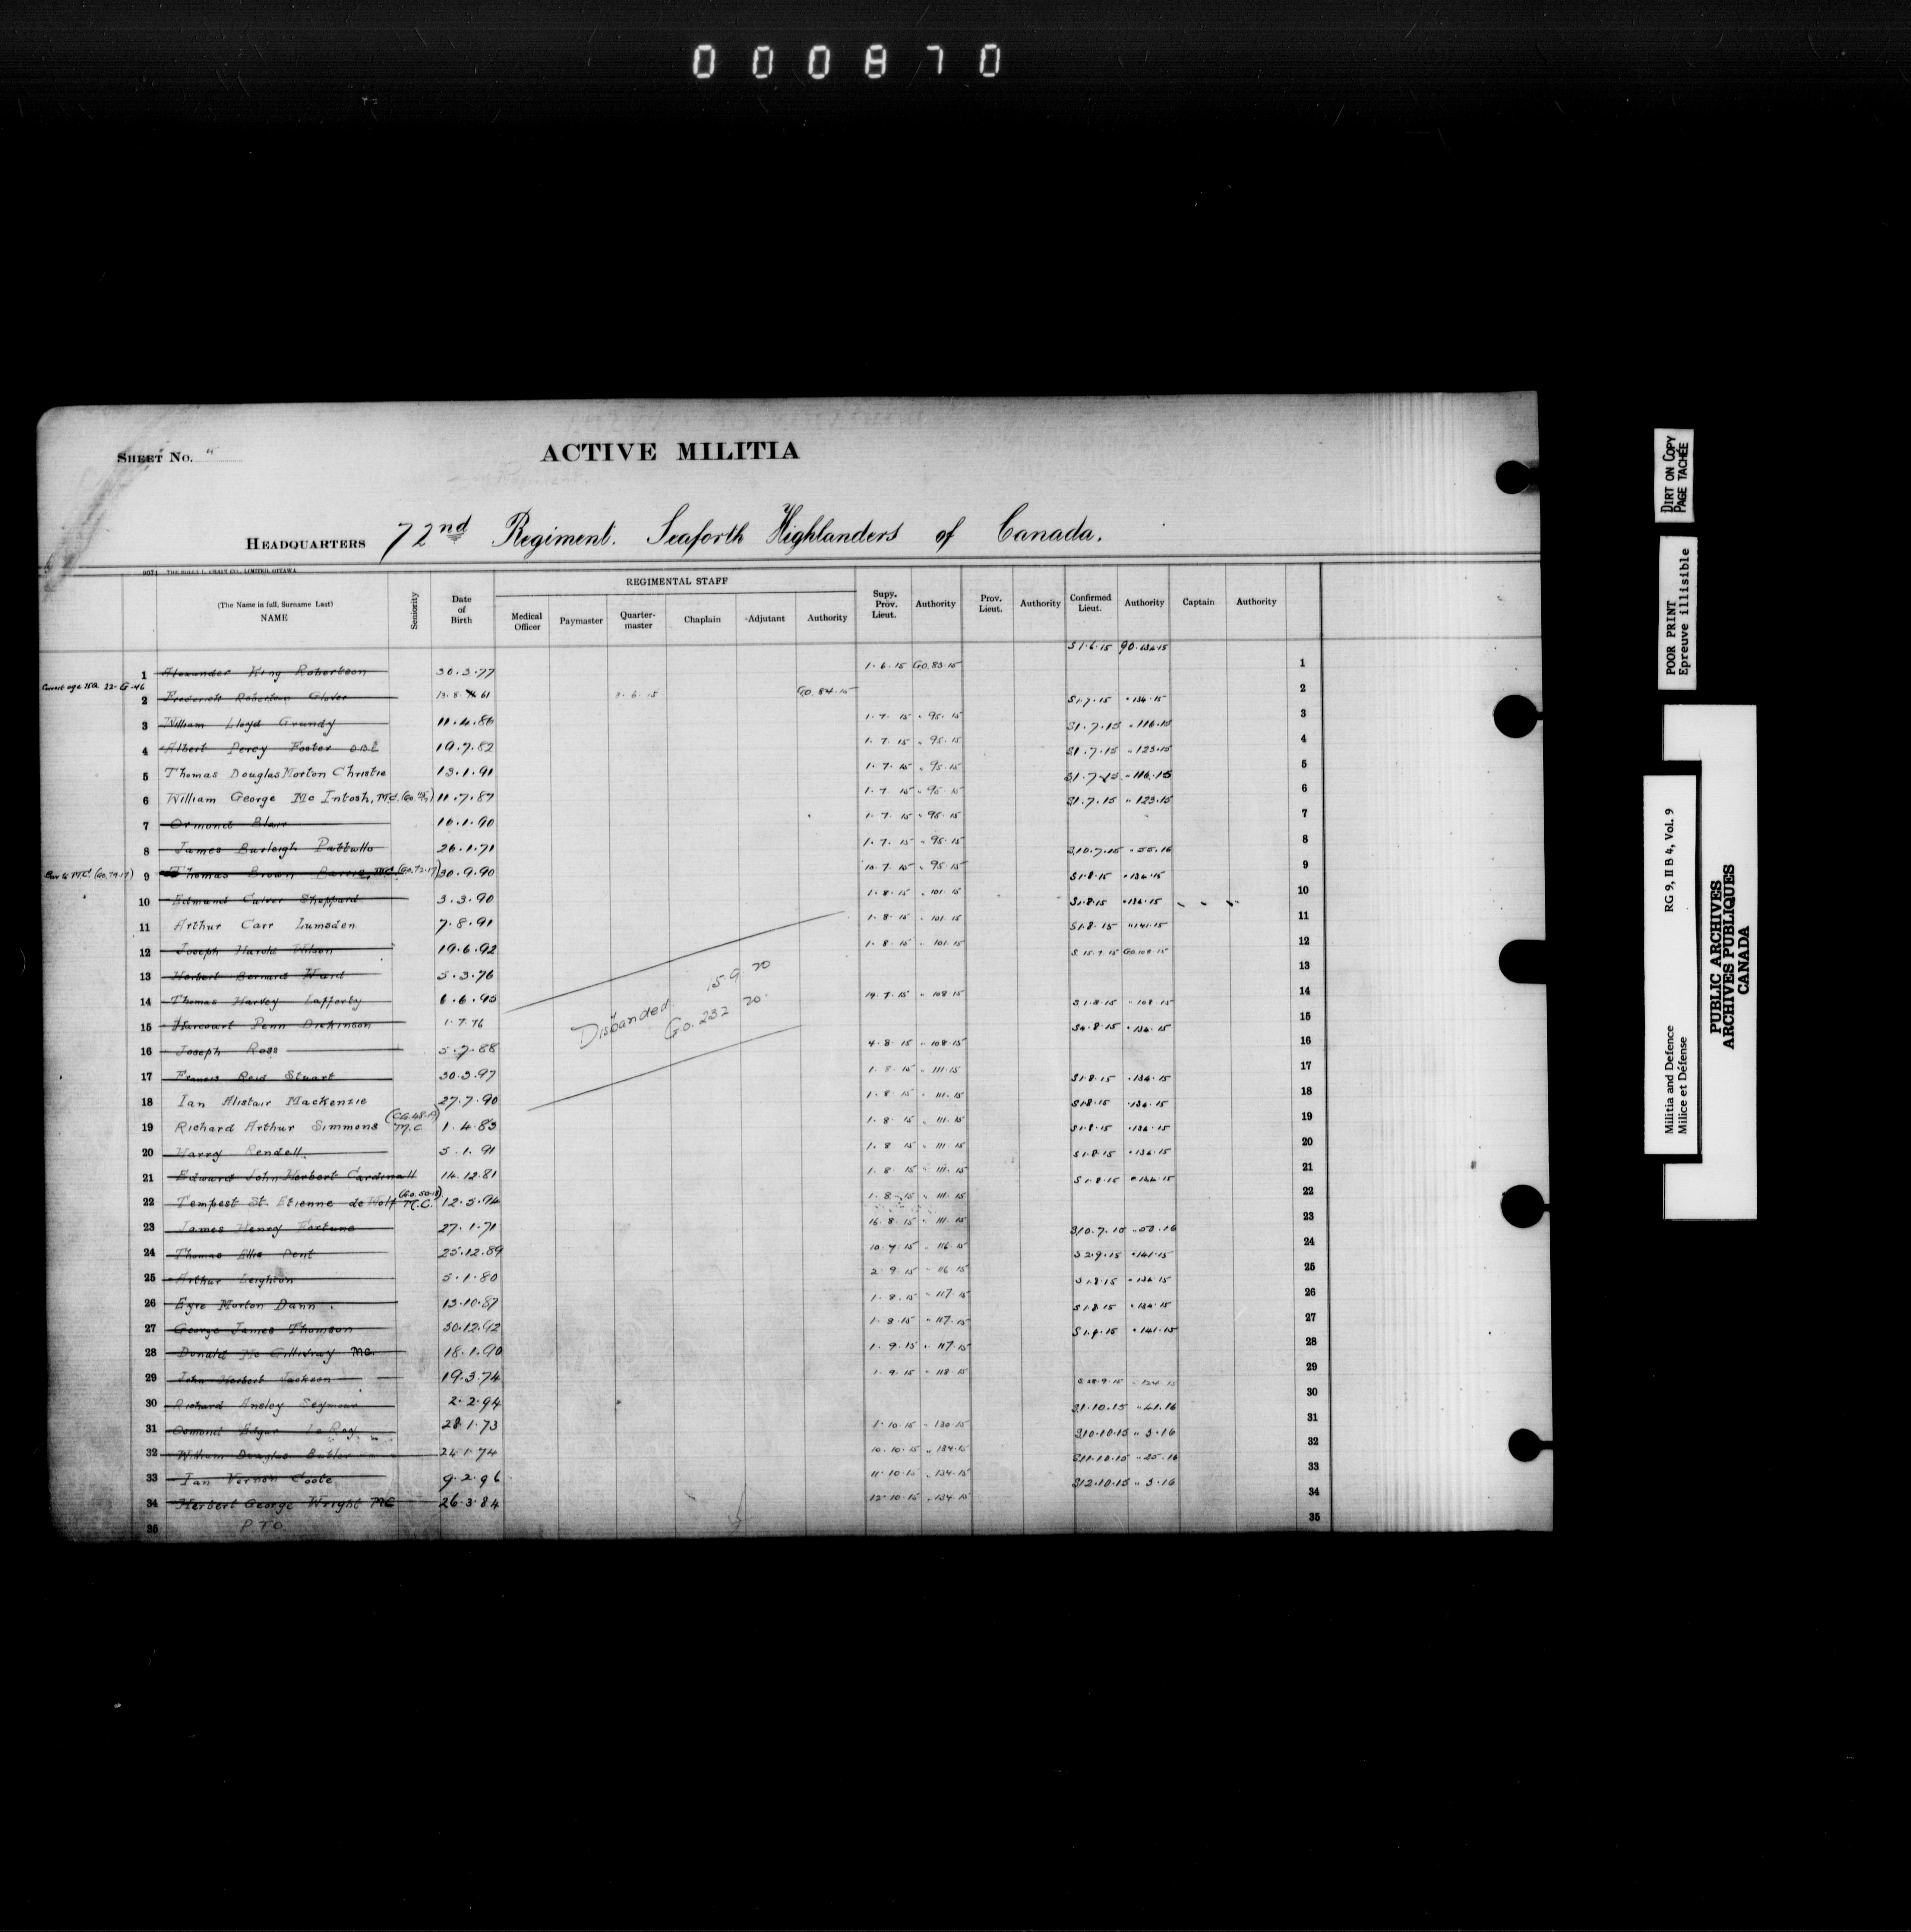 000870
SHEET No.
ACTIVE MILITIA
HEADQUARTERS 72nd Regiment. Seaforth Highlanders of Canada.
9071 THE ROLLA L. CRAIN CO., LIMITED, OTTAWA
REGIMENTAL STAFF
(The Name in full, Surname Last) NAME Seniority Date of Birth Medical Officer Paymaster Quarter-master Chaplain Adjutant Authority Supy. Prov. Lieut. Authority Prov. Lieut. Authority Confirmed Lieut. Authority Captain Authority
1 Alexander King Robertson 30.3.77 1.6.15 G.O.83.15 S1.6.15 1
2 Frederick Robertson Glover G.O.84.15 2
3 William Lloyd Grundy 11.4.86 1.7.15 " 95.15 S1.7.15 3
4 Albert Percy Foster OBE 19.7.82 1.7.15 " 95.15 S1.7.15 " 116.15 4
5 Thomas Douglas Morton Christie 13.1.91 1.7.15 " 95.15 S1.7.15 " 123.15 5
6 William George McIntosh, M.C. 11.7.87 1.7.15 " 95.15 S1.7.15 " 116.15 6
7 Ormond Blair 16.1.90 1.7.15 " 95.15 S1.7.15 " 123.15 7
8 James Burleigh Pattullo 26.1.71 1.7.15 " 95.15 8
Bar to M.C. 9 Thomas Brown 30.9.90 10.7.15 " 95.15 S10.7.15 " 55.16 9
10 Edmund Culver Sheppard 3.3.90 1.8.15 " 101.15 S1.8.15 " 134.15 10
11 Arthur Carr Lumsden 7.8.91 1.8.15 " 101.15 S1.8.15 " 134.15 11
12 Joseph Harold Wilson 19.6.92 1.8.15 " 101.15 S1.8.15 " 141.15 12
13 Herbert Bernard Ward 5.3.76 S 15.7.15 G.O.108.15 13
14 Thomas Harvey Lafferty 6.6.95 19.7.15 " 108.15 14
15 Harcourt Penn Dickinson 1.7.76 S1.8.15 " 108.15 15
16 Joseph Ross 5.7.88 4.8.15 " 108.15 S4.8.15 " 134.15 16
17 Francis Reid Stuart 30.3.97 1.8.15 " 111.15 17
18 Ian Alistair Mackenzie 27.7.90 1.8.15 " 111.15 S1.8.15 " 134.15 18
19 Richard Arthur Simmons M.C. 1.4.83 1.8.15 " 111.15 S1.8.15 " 134.15 19
20 Harry Rendell. 5.1.91 1.8.15 " 111.15 S1.8.15 " 134.15 20
21 Edward John Herbert Cardinall 14.12.81 1.8.15 " 111.15 S1.8.15 " 134.15 21
22 Tempest St. Etienne de Wolf M.C. 12.5.94 1.8.15 " 111.15 S1.8.15 22
23 James Henry Fortune 27.1.71 16.8.15 " 111.15 23
24 Thomas Ellis Dent 25.12.89 " 116.15 S10.7.15 24
25 Arthur Leighton 5.1.80 2.9.15 " 116.15 S2.9.15 " 141.15 25
26 Eyre Morton Dann 13.10.87 1.8.15 " 117.15 S1.8.15 " 134.15 26
27 George James Thomson 30.12.92 1.8.15 " 117.15 S1.8.15 " 134.15 27
28 Donald McGillivray MC. 18.1.90 1.9.15 " 117.15 S1.9.15 " 141.15 28
29 John Herbert Jackson 19.3.74 1.9.15 " 118.15 29
30 Richard Ansley Seymour 2.2.94 30
31 Osmond Edgar Le Roy 28.1.73 1.10.15 " 130.15 S1.10.15 " 41.16 31
32 William Douglas 24.1.74 10.10.15 " 134.15 S10.10.15 " 3.16 32
33 Ian Vernon Coote 9.2.96 11.10.15 " 134.15 S11.10.15 " 25.16 33
34 Herbert George Wright MC 26.3.84 12.10.15 " 134.15 S12.10.15 " 3.16 34
35 P T O 35
Disbanded 15.9.20
G.O. 232 20.
DIRT ON COPY
PAGE TACHÉE
POOR PRINT
Epreuve illisible
RG 9, II B 4, Vol. 9
Militia and Defence
Milice et Défense
PUBLIC ARCHIVES
ARCHIVES PUBLIQUES
CANADA